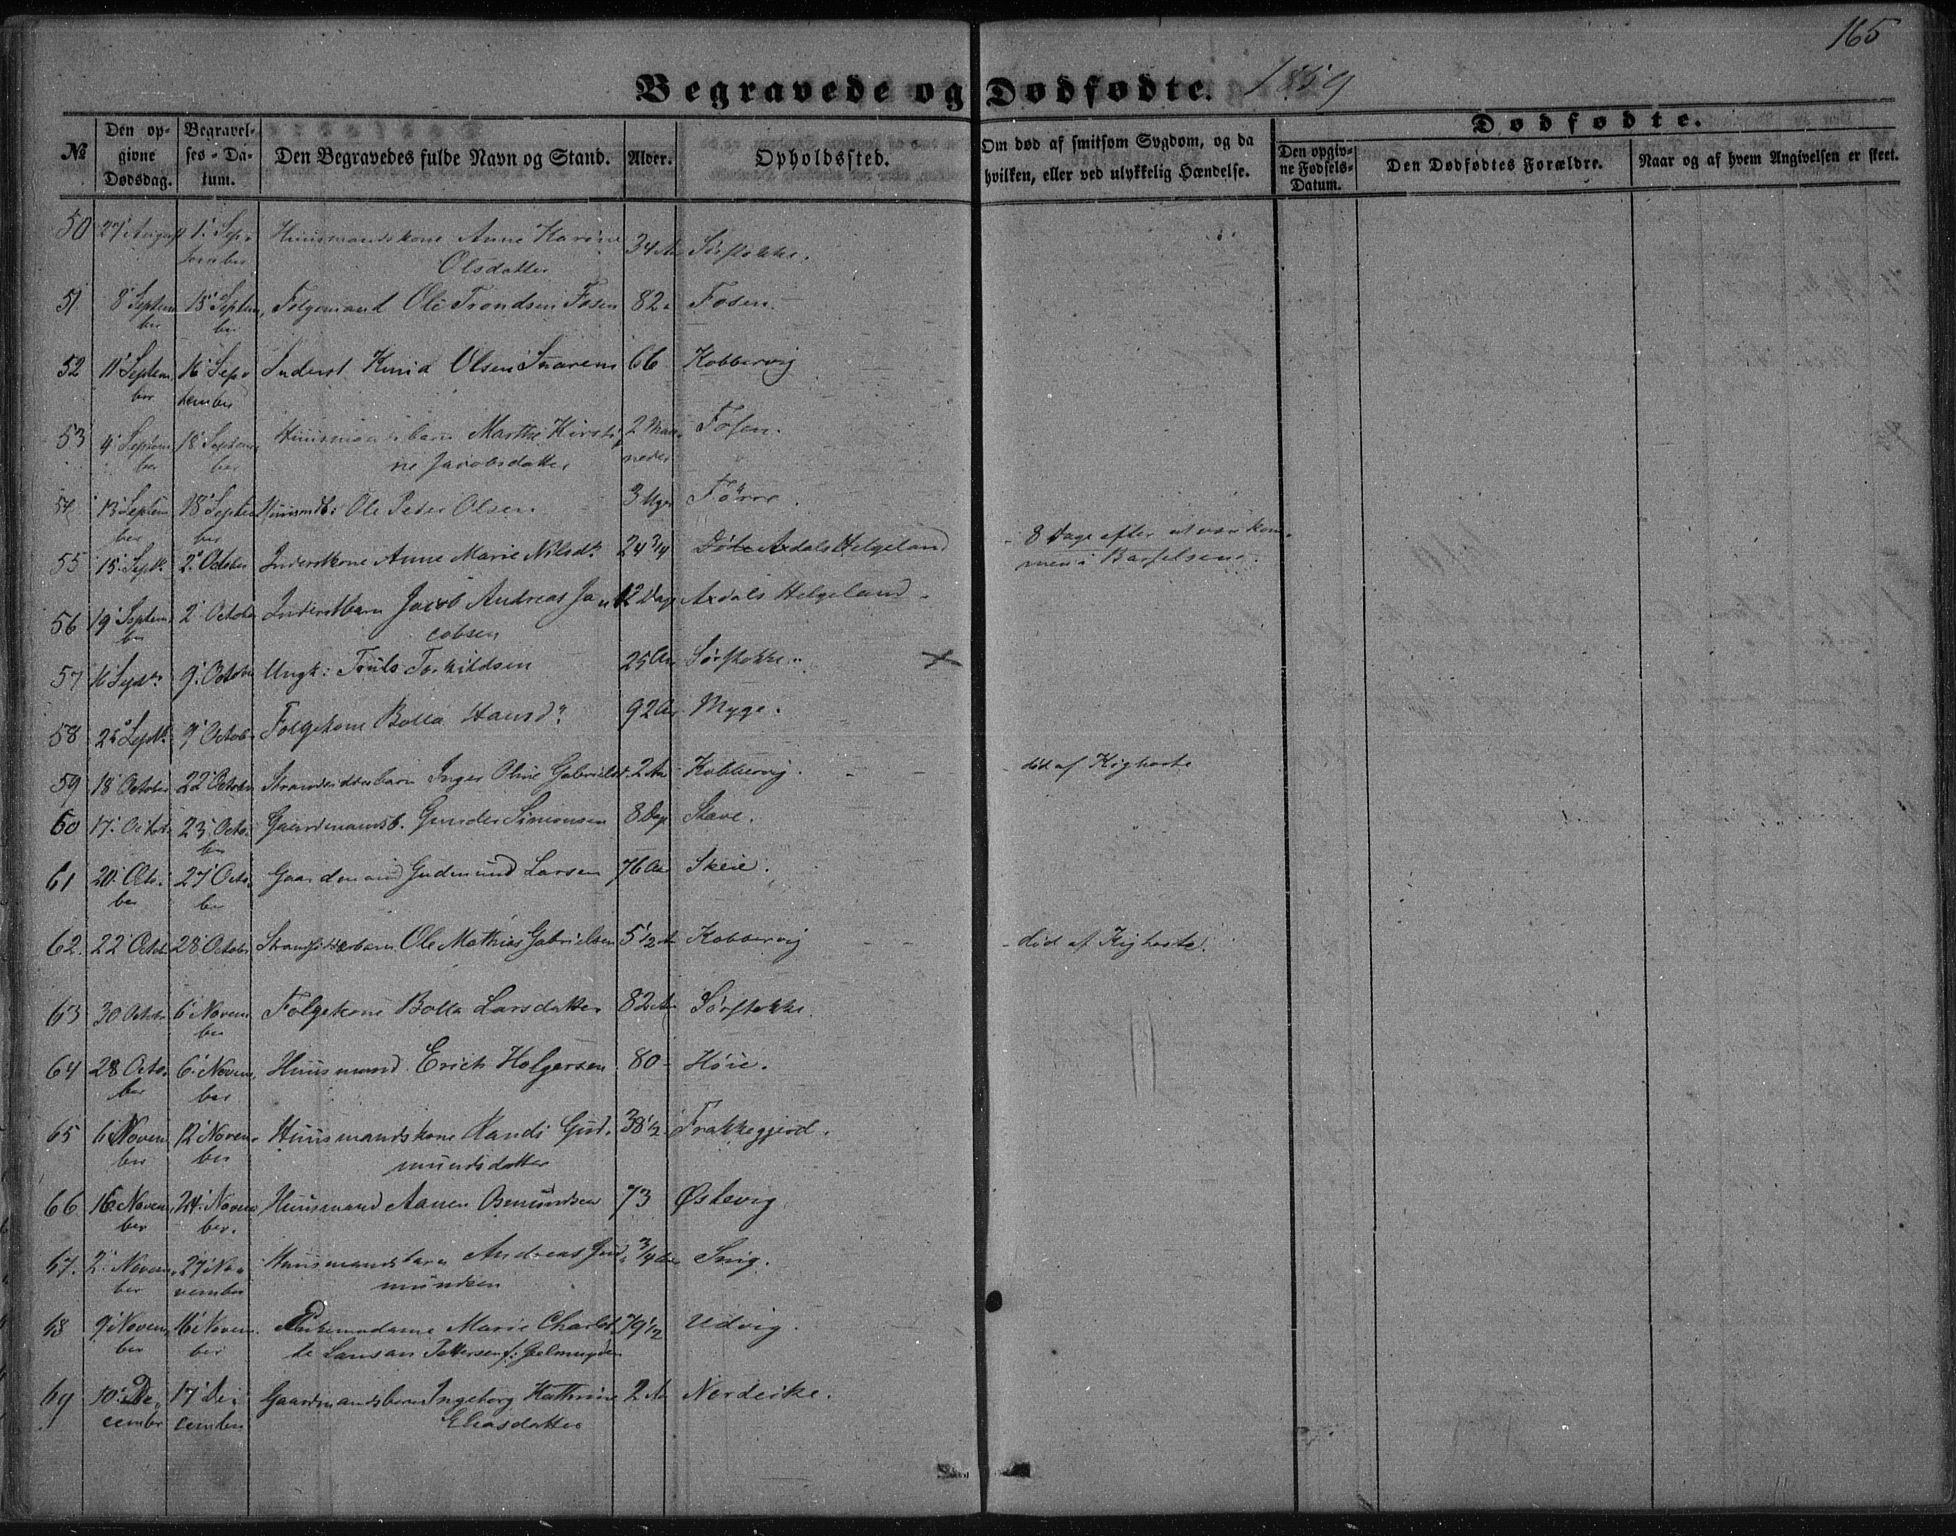 165
Begravede og Dødfødte. 1859
№
Den opgivne Dødsdag.
Begravelses-Datum.
Den Begravedes fulde Navn og Stand.
Alder.
Opholdssted.
Om død af smitsom Sygdom, og da hvilken, eller ved ulykkelig Hændelse.
Dødfødte.
Den opgivne Fødsels-Datum.
Den Dødfødtes Forældre.
Naar og af hvem Angivelsen er skeet.
50 27 August 1 September Huusmandskone Anne Karine Olsdatter 34 Aar Sørstokke.
51 8 September 15 September Folgemand Ole Trondsen Fosen 82 Fosen.
52 11 September 16 September Inderst Knud Olsen 66 Kobbervig
53 4 September 18 September Huusmandsbarn Marthe Kirstine Jacobsdatter 2 Maaneder Fosen.
54 13 September 18 September Huusmdb: Ole Peder Olsen 3 Uger Førre.
55 15 Septr 2 October Inderstkone Anne Marie Nilsdr 24 3/4 Axdals Helgeland 8 Dage efter at være kommen i Barselseng.
56 19 September 2 October Inderstbarn Jacob Andreas Jacobsen 12 Dag Axdals Helgeland
57 16 Septr 9 October Ungk: Truls Torkildsen 25 Aar Sørstokke.
58 25 Septr 9 October Folgekone Bolla Hansdr 92 Aar Myge.
59 18 October 22 October Strandsidderbarn Inger Oline Gabrielsd. 2 Aar Kobbervig. død af Kighoste
60 17 October 23 October Gaardmandsb. Gunder Simonsen 8 Dage Stave.
61 20 October 27 October Gaardmand Gudmund Larsen 76 Aar Skeie.
62. 22 Octob 28 October Strandsidderbarn Ole Mathias Gabrielsen 5 1/2 Aar Kobbervig død af Kighoste.
63 30 Octobr 6 November Folgekone Bolla Larsdatter 82 Aar Sørstokke.
64 28 October 6 November Huusmand Erich Holgersen 80 Høie.
65 6 November 12 November Huusmandskone Randi Gudmundsdatter 38 1/2 Frakkegjerd.
66 16 November 24 November Huusmand Aanen Osmundsen 73 Østevig
67. 2 November 27 November Huusmandsbarn Andreas Gudmundsen 3/4 Aar Snig.
68 9 November 16 November Marie Charlotte Pettersen f: 79 1/2 Udvig.
69 10 December 17 December Gaardmandsbarn Ingeborg Kathrine Eliasdatter 2 Aar Nordeike.